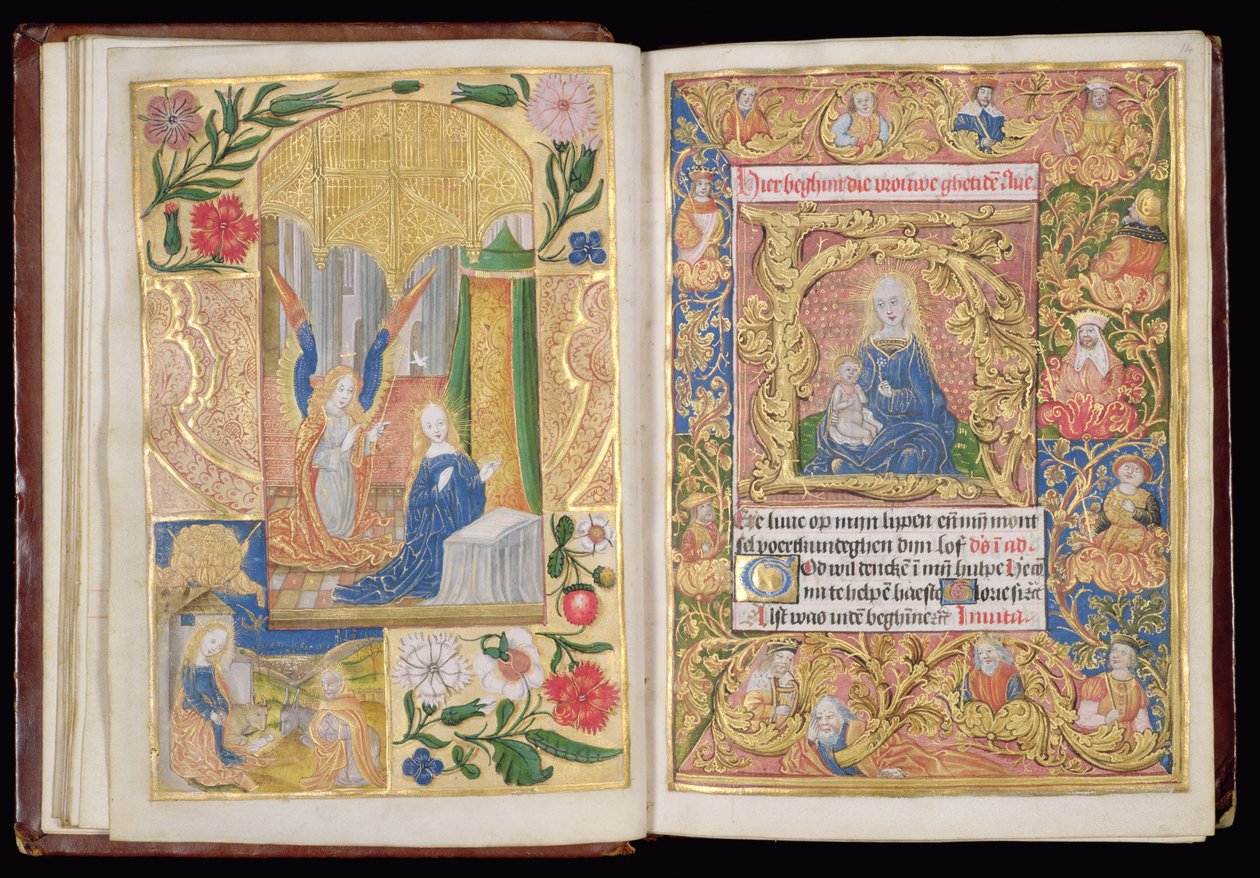 14
Hier beghint die vrouwe ghetidē Aue.
Ere luuc op mijn lypen eñ mijn mont
sel voertkundeghen dijn lof d's ī ad.
God wil denckē ī mijn hulpe Heer
mi te helpē haeste Glorie
Alst was indē beghīne Inuita.